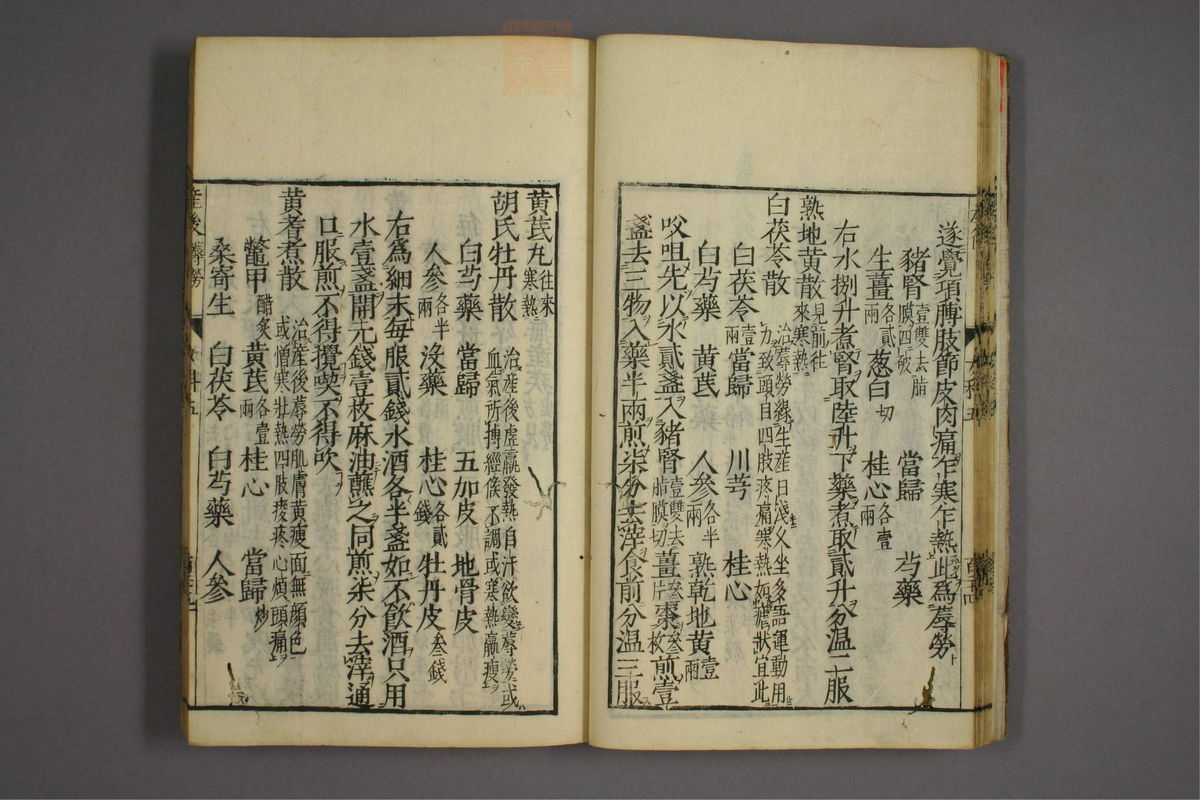 遂覺項膊肢節皮肉痛乍寒乍熱此爲蓐勞
豬腎壹雙去脂膜四破 當歸 芍藥
生薑各貳兩 葱白切 桂心各壹兩
右水捌升煮腎取陸升下藥煮取貳升分温二服
熟地黄散見前徃來寒熱
白茯苓散治蓐勞緣生産日淺久坐多語運動用力致頭目四肢疼痛寒熱如瘧狀宜此
白茯苓壹兩 當歸 川芎 桂心
白芍藥 黄芪 人參各半兩 熟乾地黄壹兩
㕮咀先以水貳盞入豬腎壹雙去脂膜切薑叁片棗叁枚煎壹
盞去三物入藥半兩煎柒分去滓食前分温三服
黄芪丸往來寒熱
胡氏牡丹散治産後虚羸發熱自汗欲變蓐勞或血氣所搏經候不調或寒熱羸瘦
白芍藥 當歸 五加皮 地骨皮
人參各半兩 没藥 桂心各貳錢 牡丹皮叁錢
右爲細末每服貳錢水酒各半盞如不飲酒只用
水壹盞開元錢壹枚麻油蘸之同煎柒分去滓通
口服煎不得攪喫不得吹
黄耆煮散治産後蓐勞肌膚黄瘦面無顔色或憎寒壯熱四肢痠疼心煩頭痛
鼈甲醋炙 黄芪各壹兩 桂心 當歸炒
桑寄生 白茯苓 白芍藥 人參
産後蓐勞